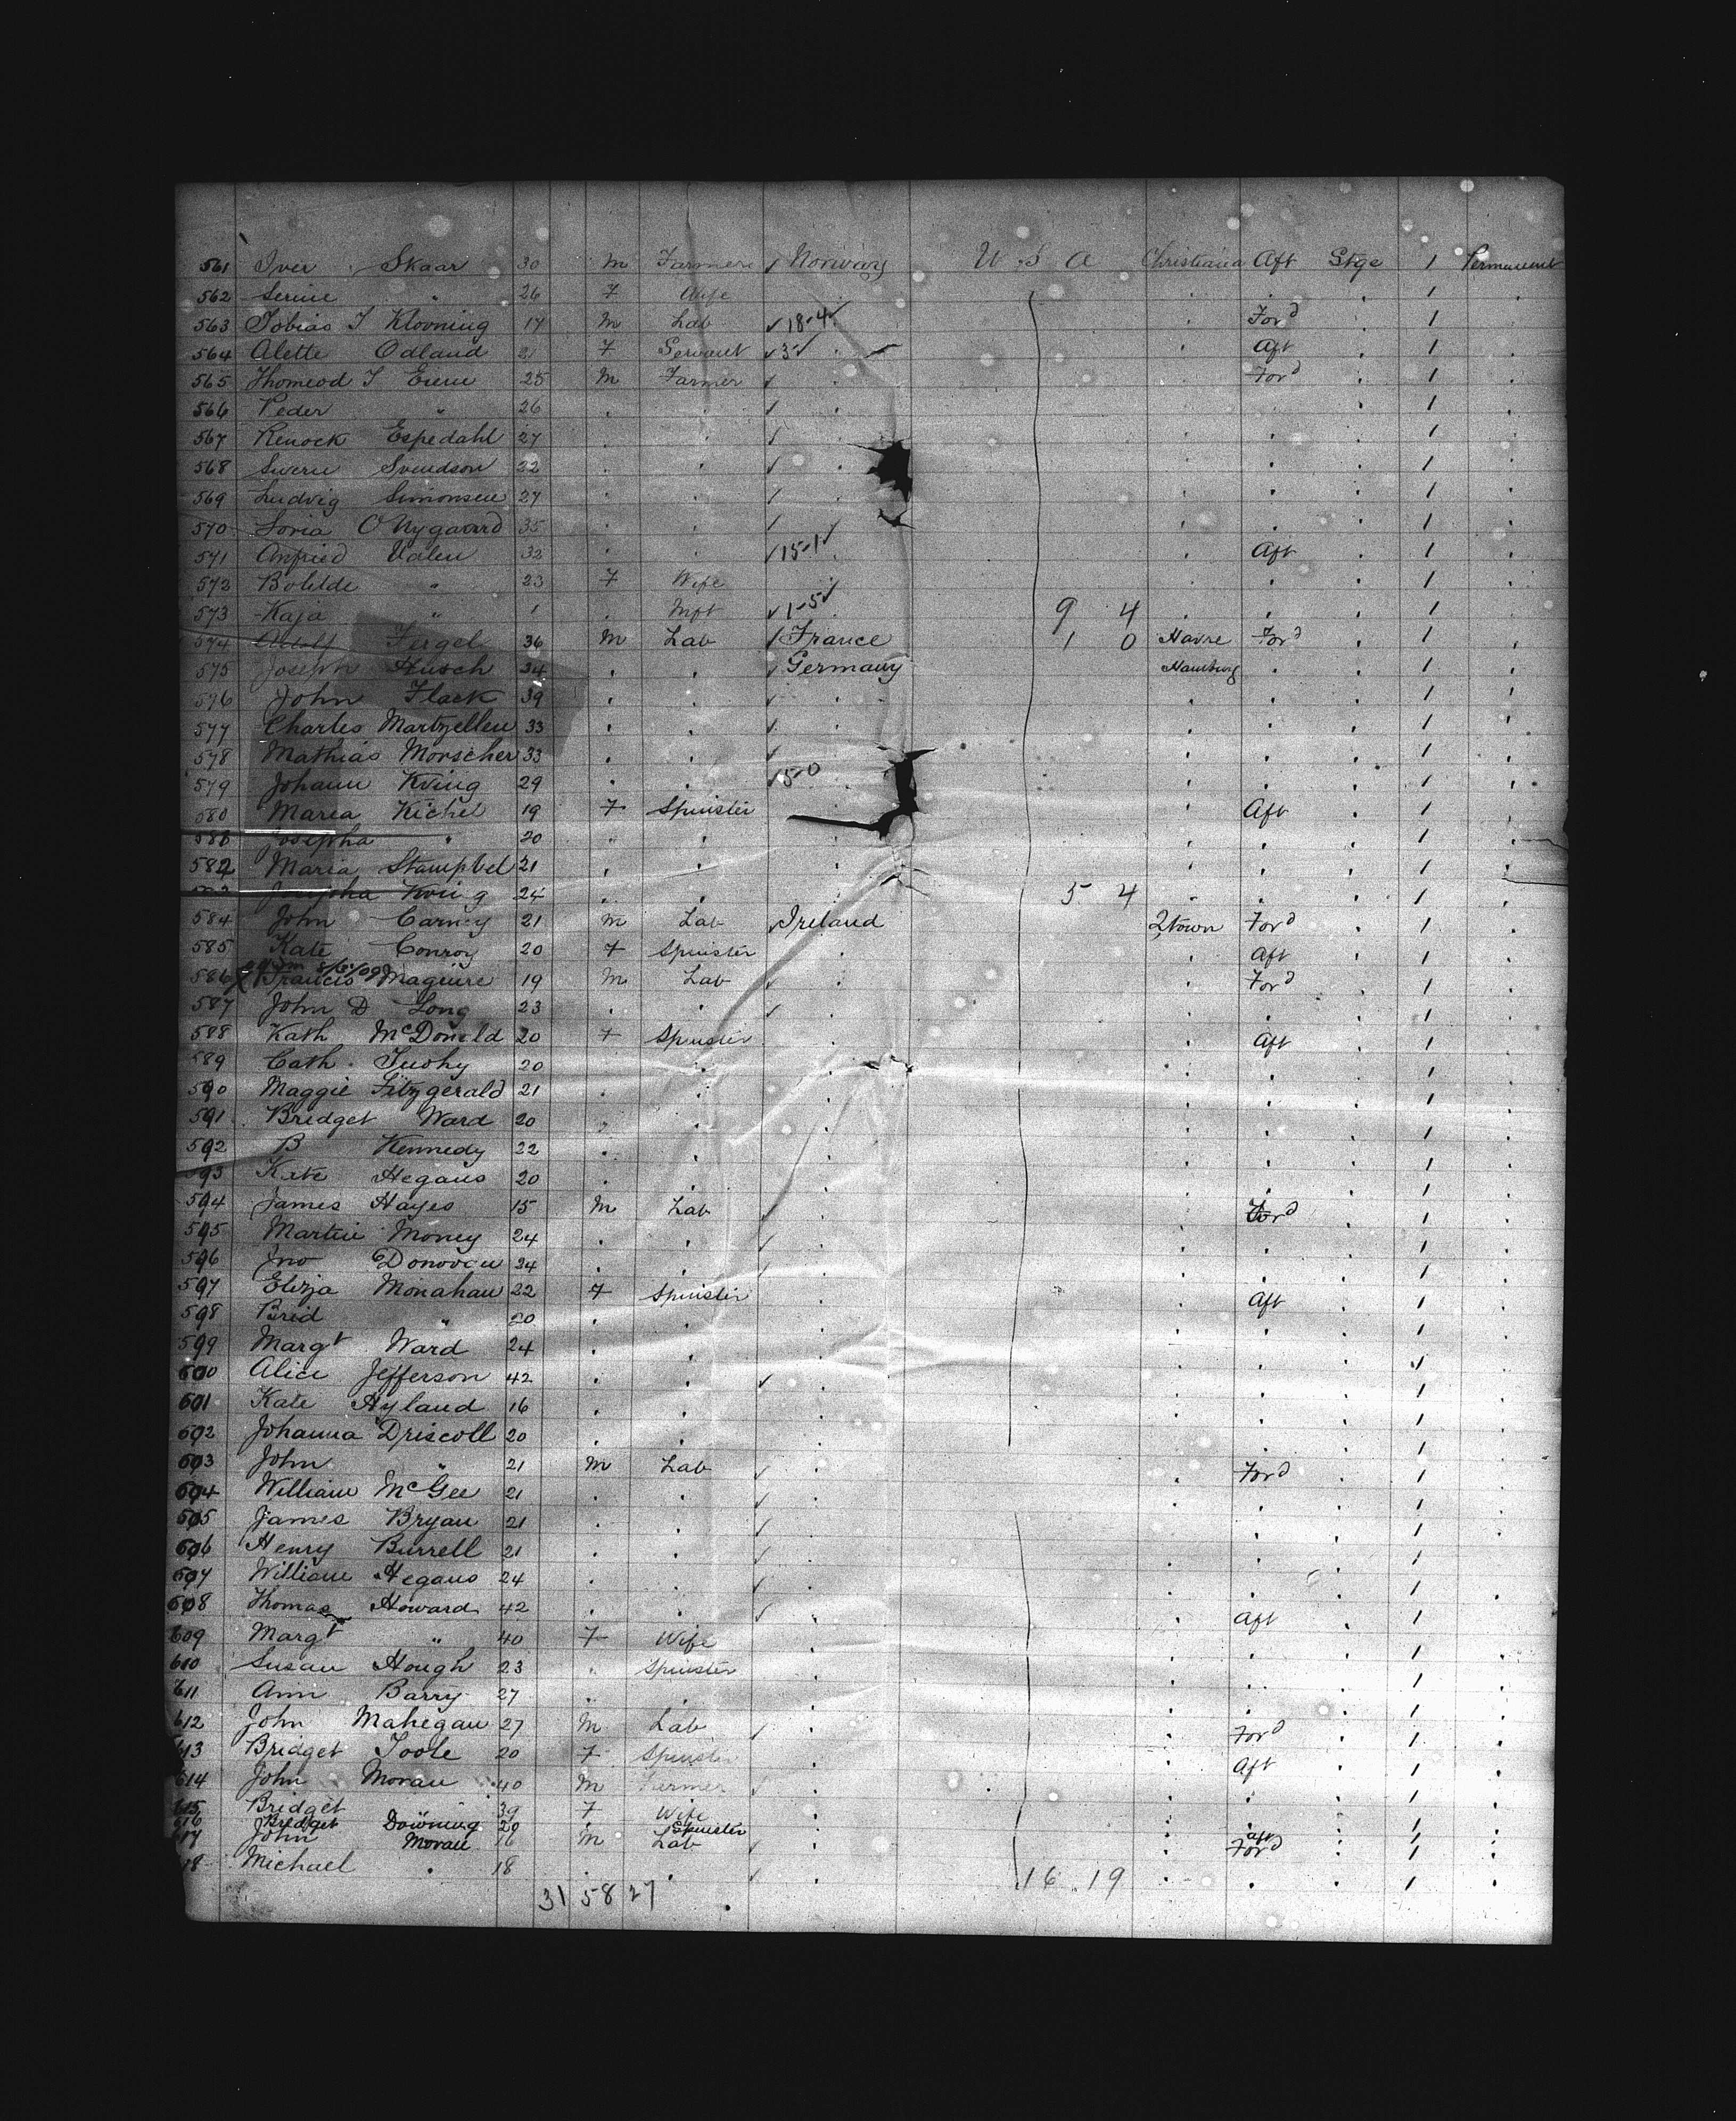 561 Iver Skaar 30 m Farmer ✓ Norway U S A Christiania Aft Stge 1 Permanent
562 Serine " 26 F Wife 1
563 Tobias T Klovning 17 m Lab ✓ 18-4 ✓ Ford 1
564 Alette Odland 21 F Servant ✓ 3 ✓ Aft 1
565 T 25 m Farmer ✓ Ford 1
566 Peder " 26 ✓ 1
567 Espedahl 27 ✓ 1
568 Svendson 22 ✓ 1
569 Ludvig Simonsen 27 1
570 O Nygaard 35 1
571 Valen 32 ✓ 15-1 ✓ Aft 1
572 Bolilde " 23 F Wife 1
573 Kaja " 1 Inft ✓ 1-5 ✓ 9 4 1
574 Adolf Fergel 36 m Lab France 1 0 Havre Ford 1
575 Joseph Husch 34 Germany Hamburg 1
576 John Flack 39 1
577 Charles Martzellen 33 1
578 Mathias Morscher 33 ✓ 1
579 Johann 29 ✓ 5-0 1
580 Maria Kichel 19 F Spinster Aft 1
581 Josepha " 20 1
582 Maria 21 1
583 Josepha 24 5 4 1
584 John Carney 21 m Lab ✓ Ireland Qtown Ford 1
585 Kate Conroy 20 F Spinster Aft 1
586 X Francis Maguire 19 m Lab ✓ Ford 1
587 John D Long 23 ✓ 1
588 Kath McDonald 20 F Spinster Aft 1
589 Cath Tuohy 20 1
590 Maggie Fitzgerald 21 1
591 Bridget Ward 20 1
592 B Kennedy 22 1
593 Kate Hegans 20 1
594 James Hayes 15 m Lab ✓ Ford 1
595 Martin Money 24 ✓ 1
596 Jno Donovan 34 ✓ 1
597 Eliza Monahan 22 F Spinster Aft 1
598 Brid " 20 1
599 Margt Ward 24 1
600 Alice Jefferson 42 ✓ 1
601 Kate Hyland 16 1
602 Johanna Driscoll 20 1
603 John " 21 m Lab ✓ Ford 1
604 William McGee 21 ✓ 1
605 James Bryan 21 ✓ 1
606 Henry Burrell 21 ✓ 1
607 William Hegans 24 ✓ 1
608 Thomas Howard 42 ✓ Aft 1
609 Margt " 40 F Wife 1
610 Susan Hough 23 Spinster 1
611 Ann Barry 27 1
612 John Mahegan 27 m Lab ✓ Ford 1
613 Bridget Toole 20 F Spinster Aft 1
614 John Moran 40 m Farmer ✓ 1
615 Bridget 39 F Wife 1
616 Bridget Downing 20 Spinster aft 1
617 John Moran 16 m Lab ✓ Ford 1
618 Michael 18 ✓ 16 19 1
31 58 27